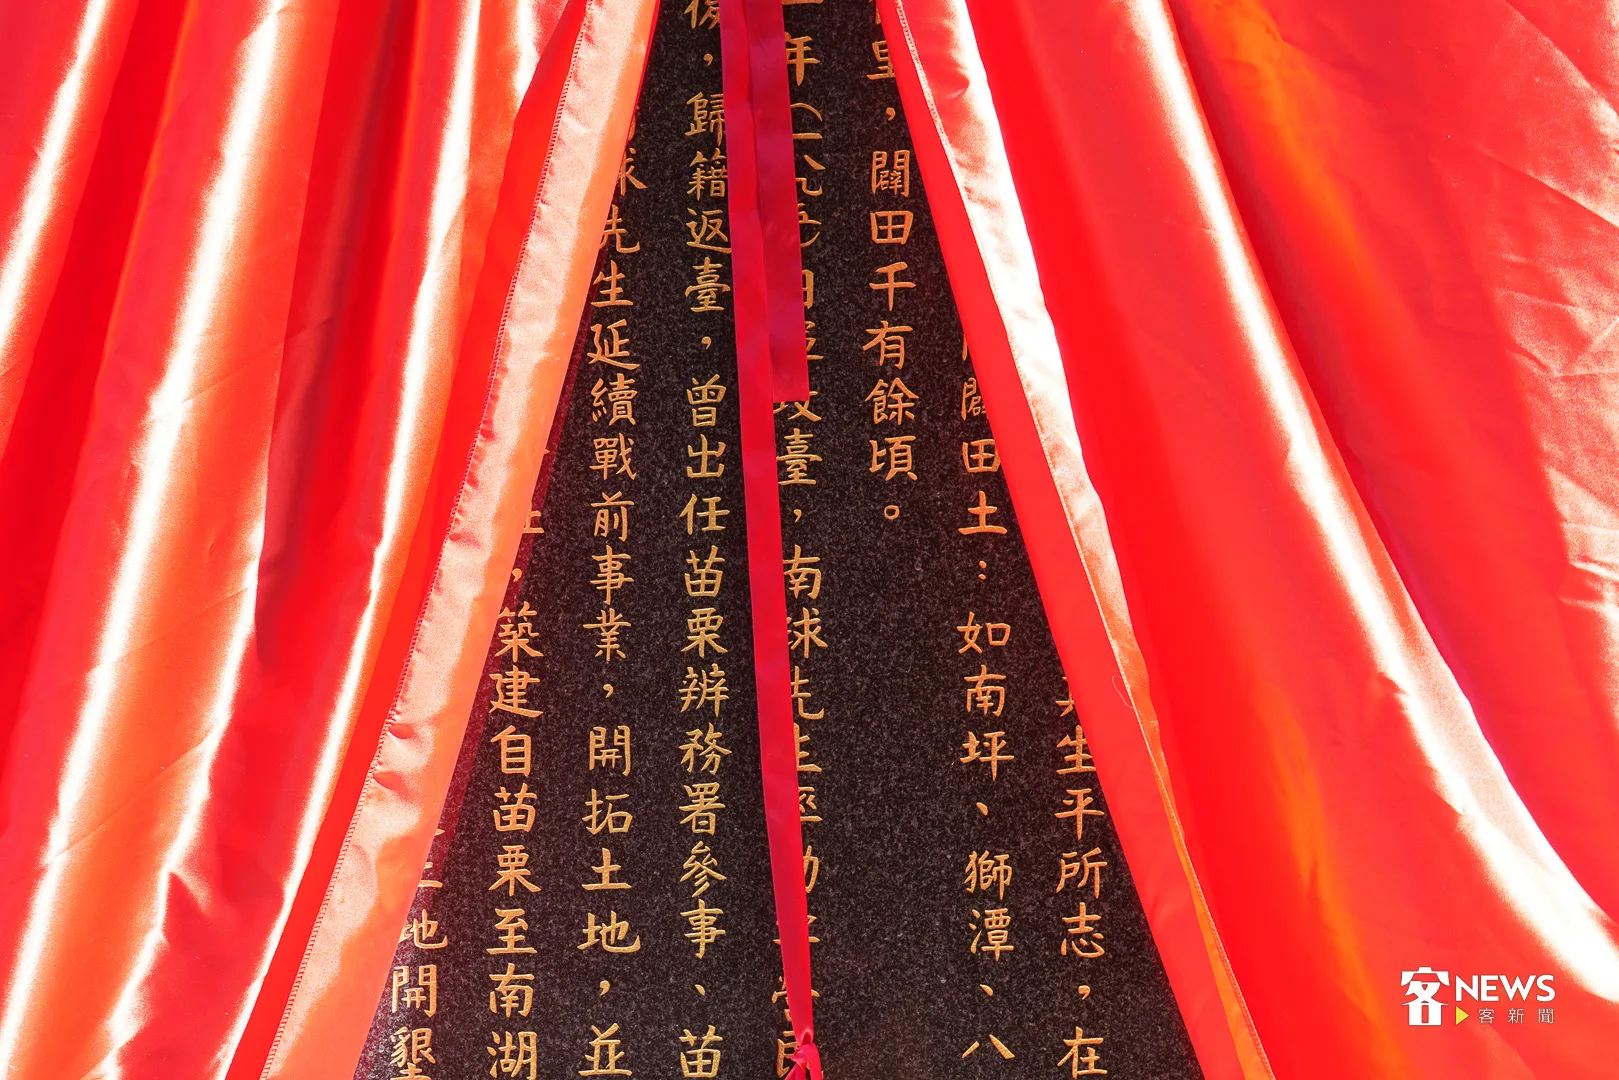 生平所志，在
闢田土：如南坪、獅潭、八
里，闢田千有餘頃。
年（一八九五）日 攻臺，南球先生 民
復，歸籍返臺，曾出任苗栗辦務署參事、苗
球先生延續戰前事業，開拓土地，並
，築建自苗栗至南湖
土地開墾
客NEWS
客新聞